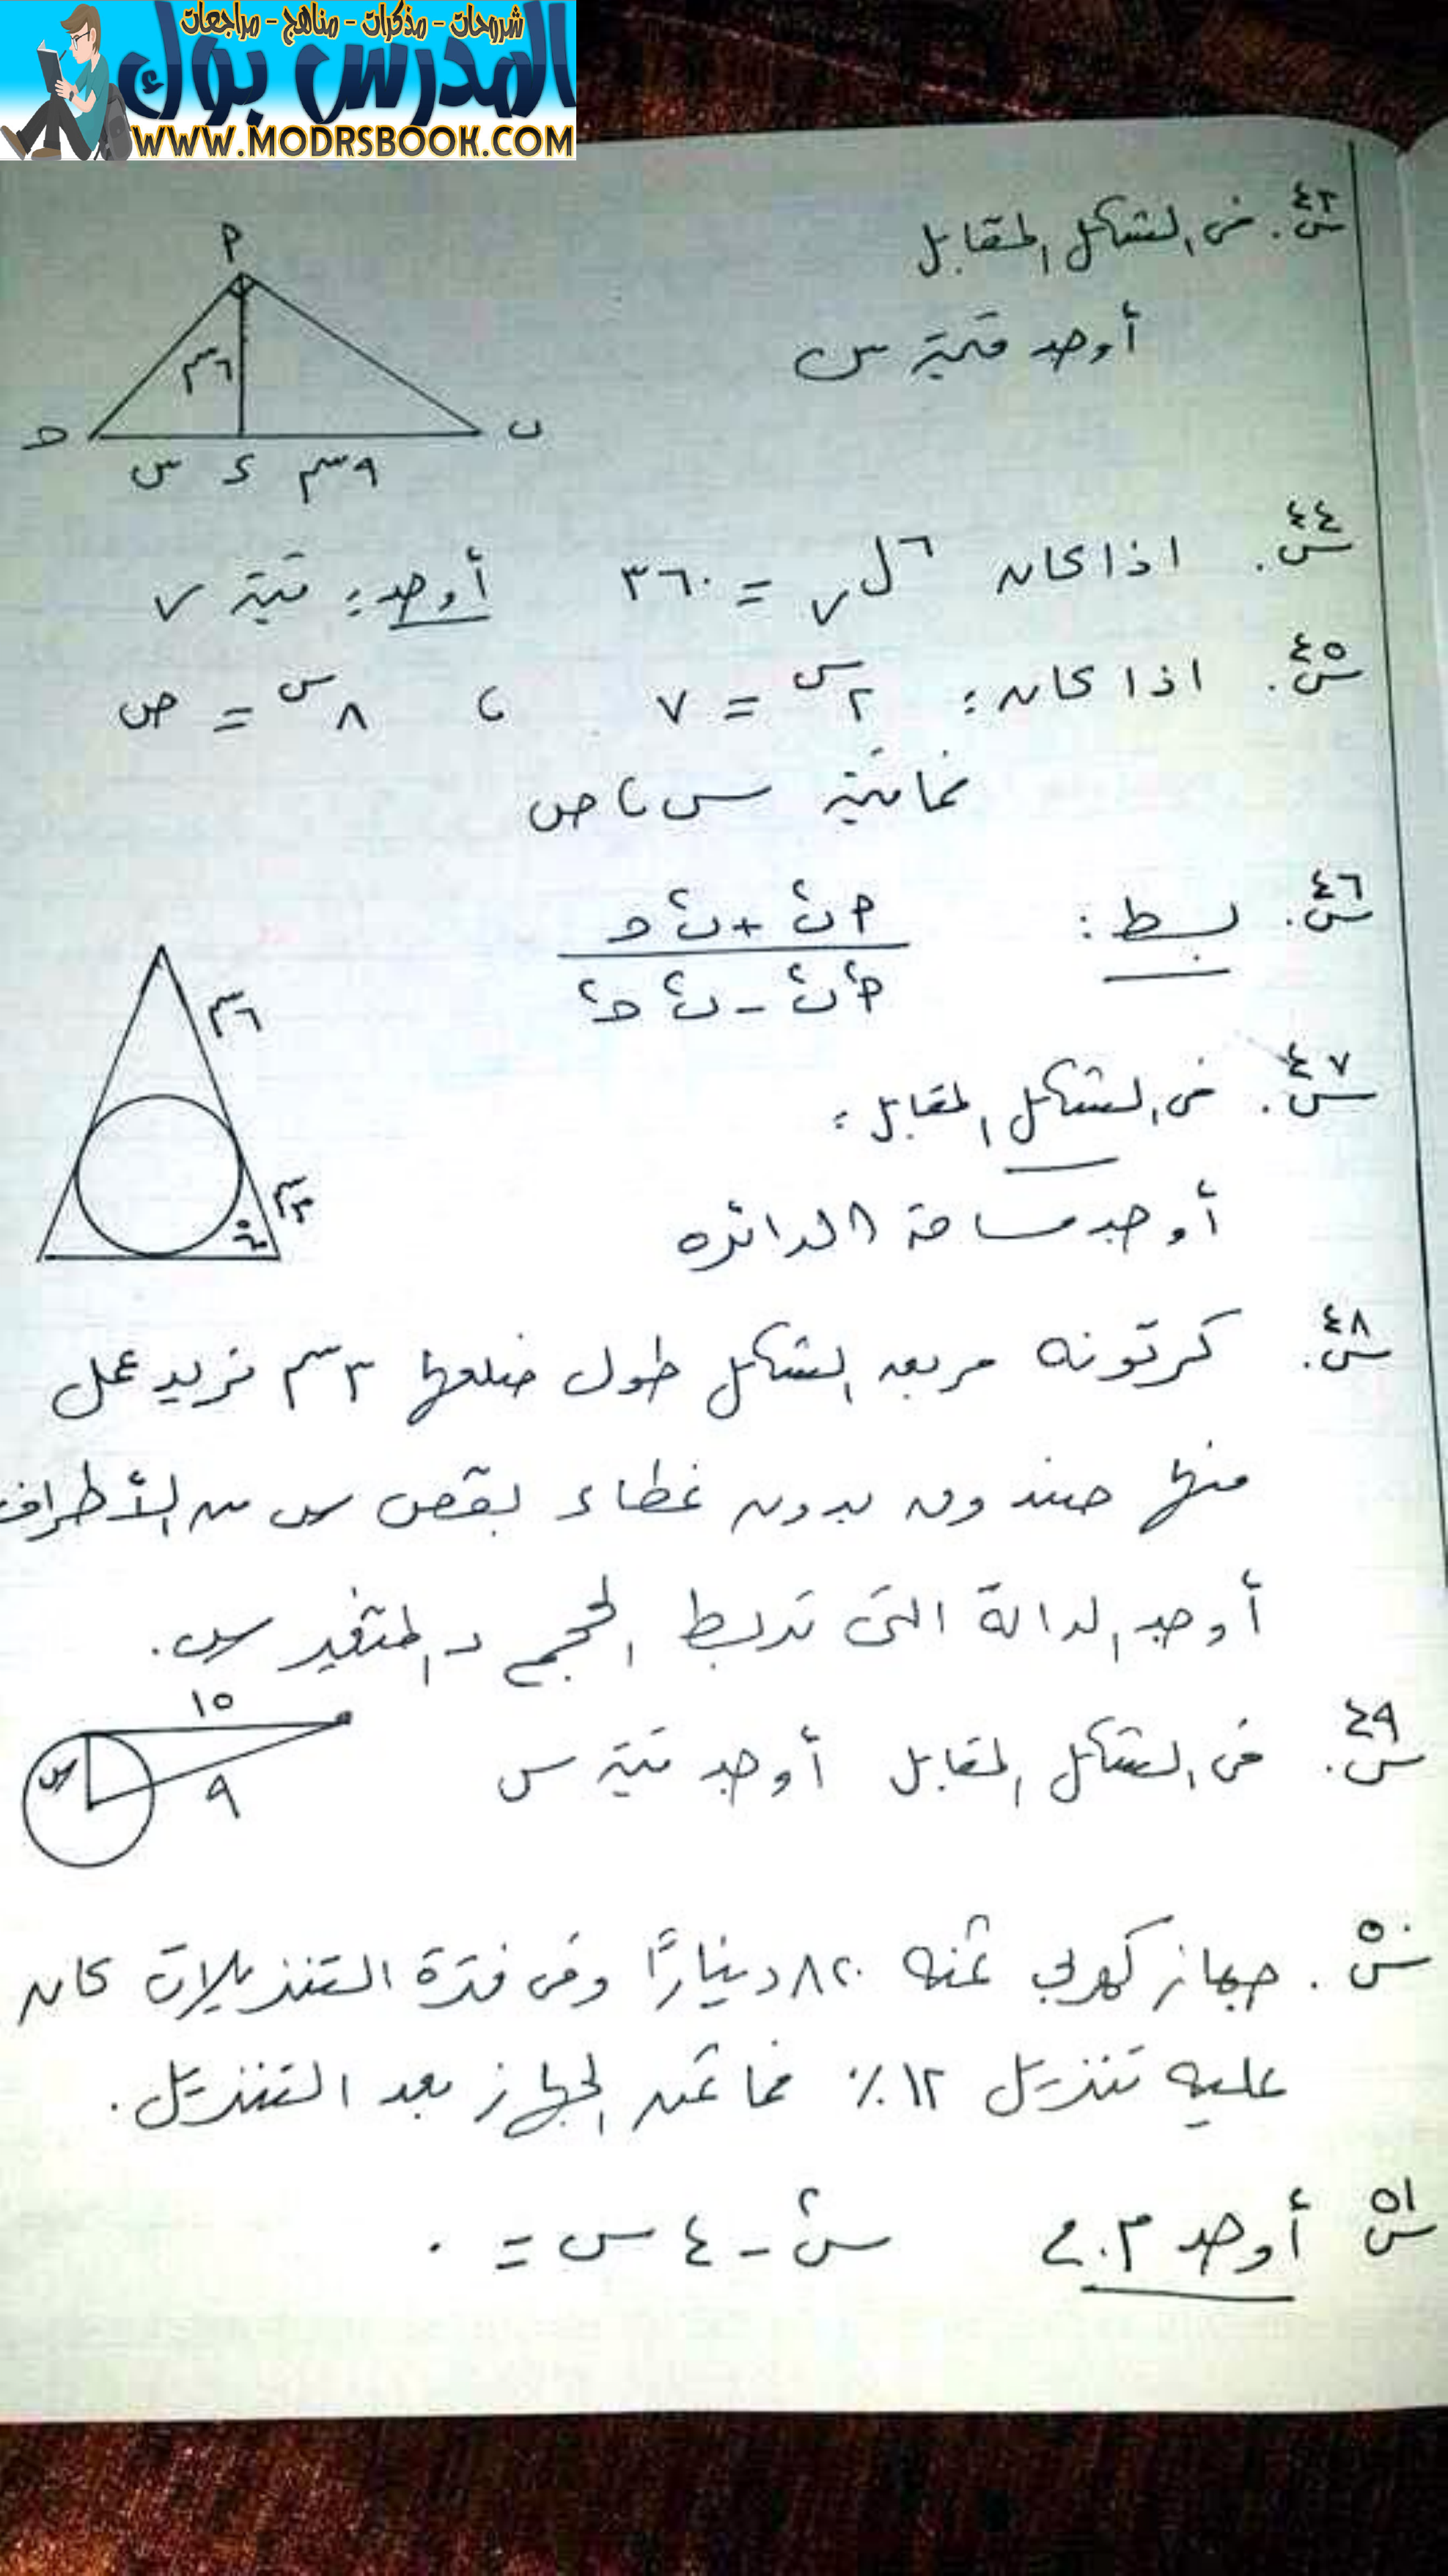 شروحات - مذكرات - مناهج - مراجعات
المدرس بوك
WWW.MODRSBOOK.COM
س٤٣. فى الشكل المقابل
أوجد قيمة س
٩
٦سم
حـ
ب
س
ء
٩سم
س٤٤. اذا كان ٦ل٧ = ٣٦٠ أوجد: قيمة ٧
س٤٥. اذا كان: ٢س = ٧ ، ٨س = ص
فما قيمة س، ص
س٤٦. بسط:
٢ب + ب٢حـ
٢ب٢ - ب٢حـ٢
٦سم
س٤٧. فى الشكل المقابل:
٣سم
أوجد مساحة الدائره
س٤٨. كرتونه مربعه الشكل طول ضلعها ٣سم نريد عمل
منها صندوق بدون غطاء بقص س من الأطراف
أوجد الدالة التى تربط الحجم بالمتغير س.
١٥
س٤٩. فى الشكل المقابل أوجد قيمة س
س
٩
س٥٠. جهاز كهربى ثمنه ٨٢٠ دينارًا وفى فترة التنزيلات كان
عليه تنزيل ١٢٪ فما ثمن الجهاز بعد التنزيل.
س٥١ أوجد م.ح س٢ - ٤س = ٠